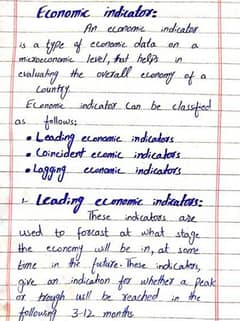 Economic indicator:
An economic indicator
is a type of economic data on a
microeconomic level, that helps in
evaluating the overall economy of a
Country.
Economic indicator can be classfied
as follows:
• Leading economic indicators
• Coincident ecomic indicators
• Lagging economic indicators
1. Leading economic indicators:
These indicators are
used to forcast at what stage
the economy will be in, at some
time in the future. These indicators,
give an indication for whether a peak
or trough will be reached in the
following 3-12 months